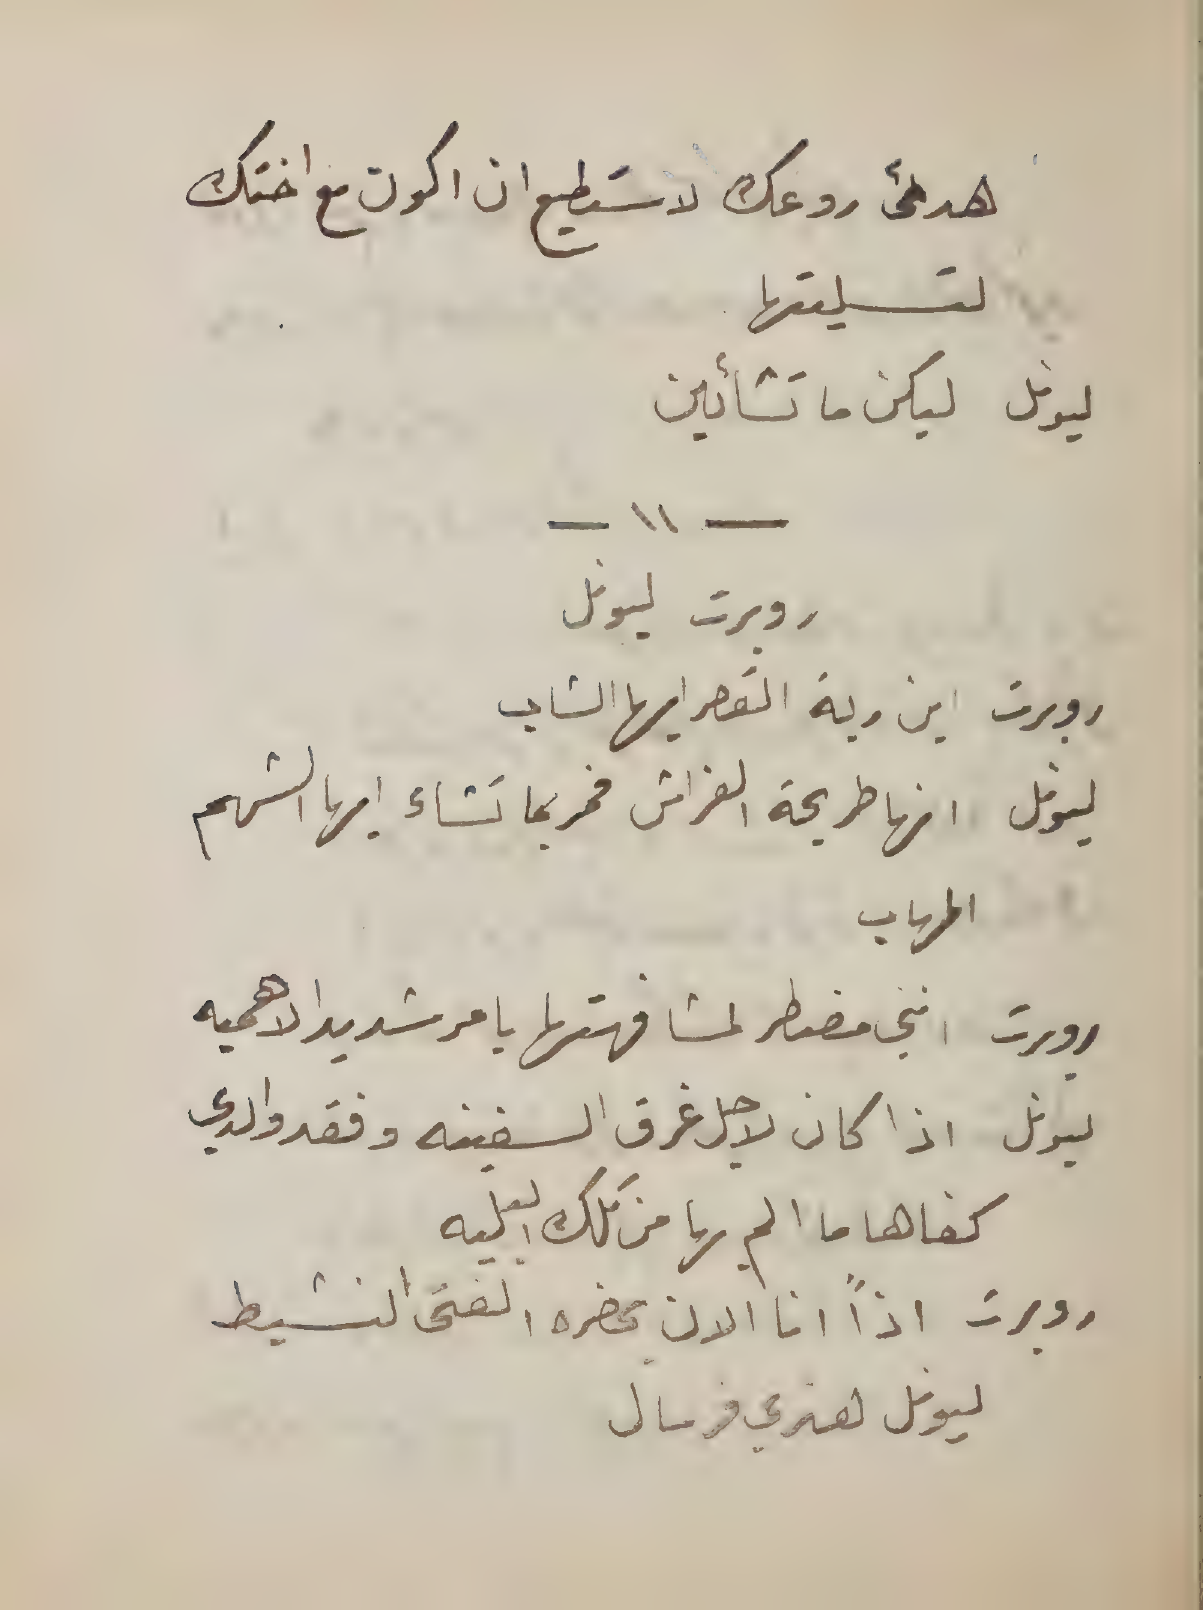 هدئ روعك لاستطيع ان اكون مع اختك
لتسليتها
ليونل ليكن ما تشأين
— ١١ —
روبرت ليونل
روبرت اين ربة القصر ايها الشاب
ليونل انها طريحة الفراش فمر بما تشاء ايها الشهم
المهاب
روبرت انني مضطر لمشافهتها بامر شديد الاهميه
ليونل اذا كان لاجل غرق السفينه وفقد والدي
كفاها ما الم بها من تلك البليه
روبرت اذاً انا الان بحضره الفتى النشيط
ليونل هنري فرسال